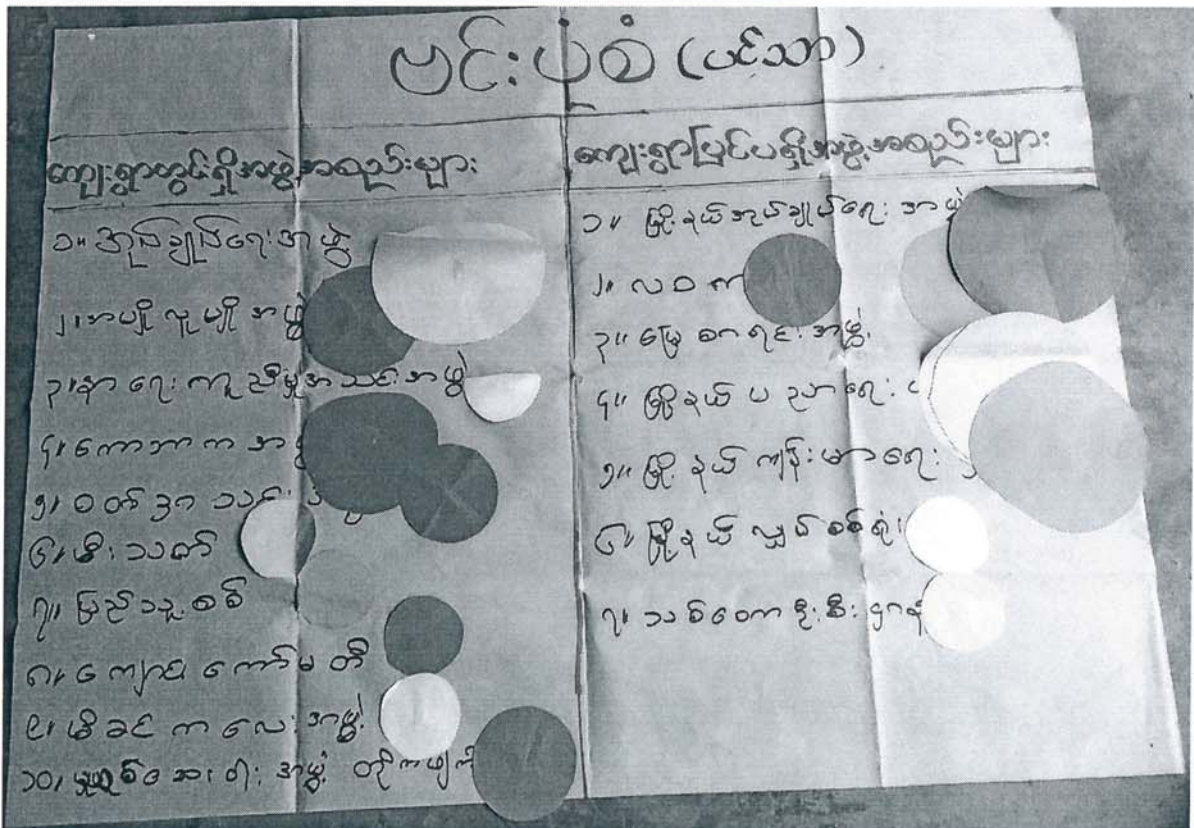 ဗင်းပုံစံ (ပင်သာ)
ကျေးရွာတွင်ရှိအဖွဲ့အစည်းများ
၁။ အုပ်ချုပ်ရေးအဖွဲ့
၂။
၃။ နာရေးကူညီမှုအသင်းအဖွဲ့
၄။
၅။
၆။ မီးသတ်
၇။ ပြည်သူ့စစ်
၈။ ကျောင်းကော်မတီ
၉။ မိခင်ကလေးအဖွဲ့
၁၀။ အဖွဲ့
ကျေးရွာပြင်ပရှိအဖွဲ့အစည်းများ
၁။ မြို့နယ်အုပ်ချုပ်ရေး
၂။ လဝက
၃။ မြေစာရင်းအဖွဲ့
၄။ မြို့နယ်ပညာရေး
၅။ မြို့နယ်ကျန်းမာရေး
၆။ မြို့နယ်လျှပ်စစ်ရုံး
၇။ သစ်တောဦးစီးဌာန